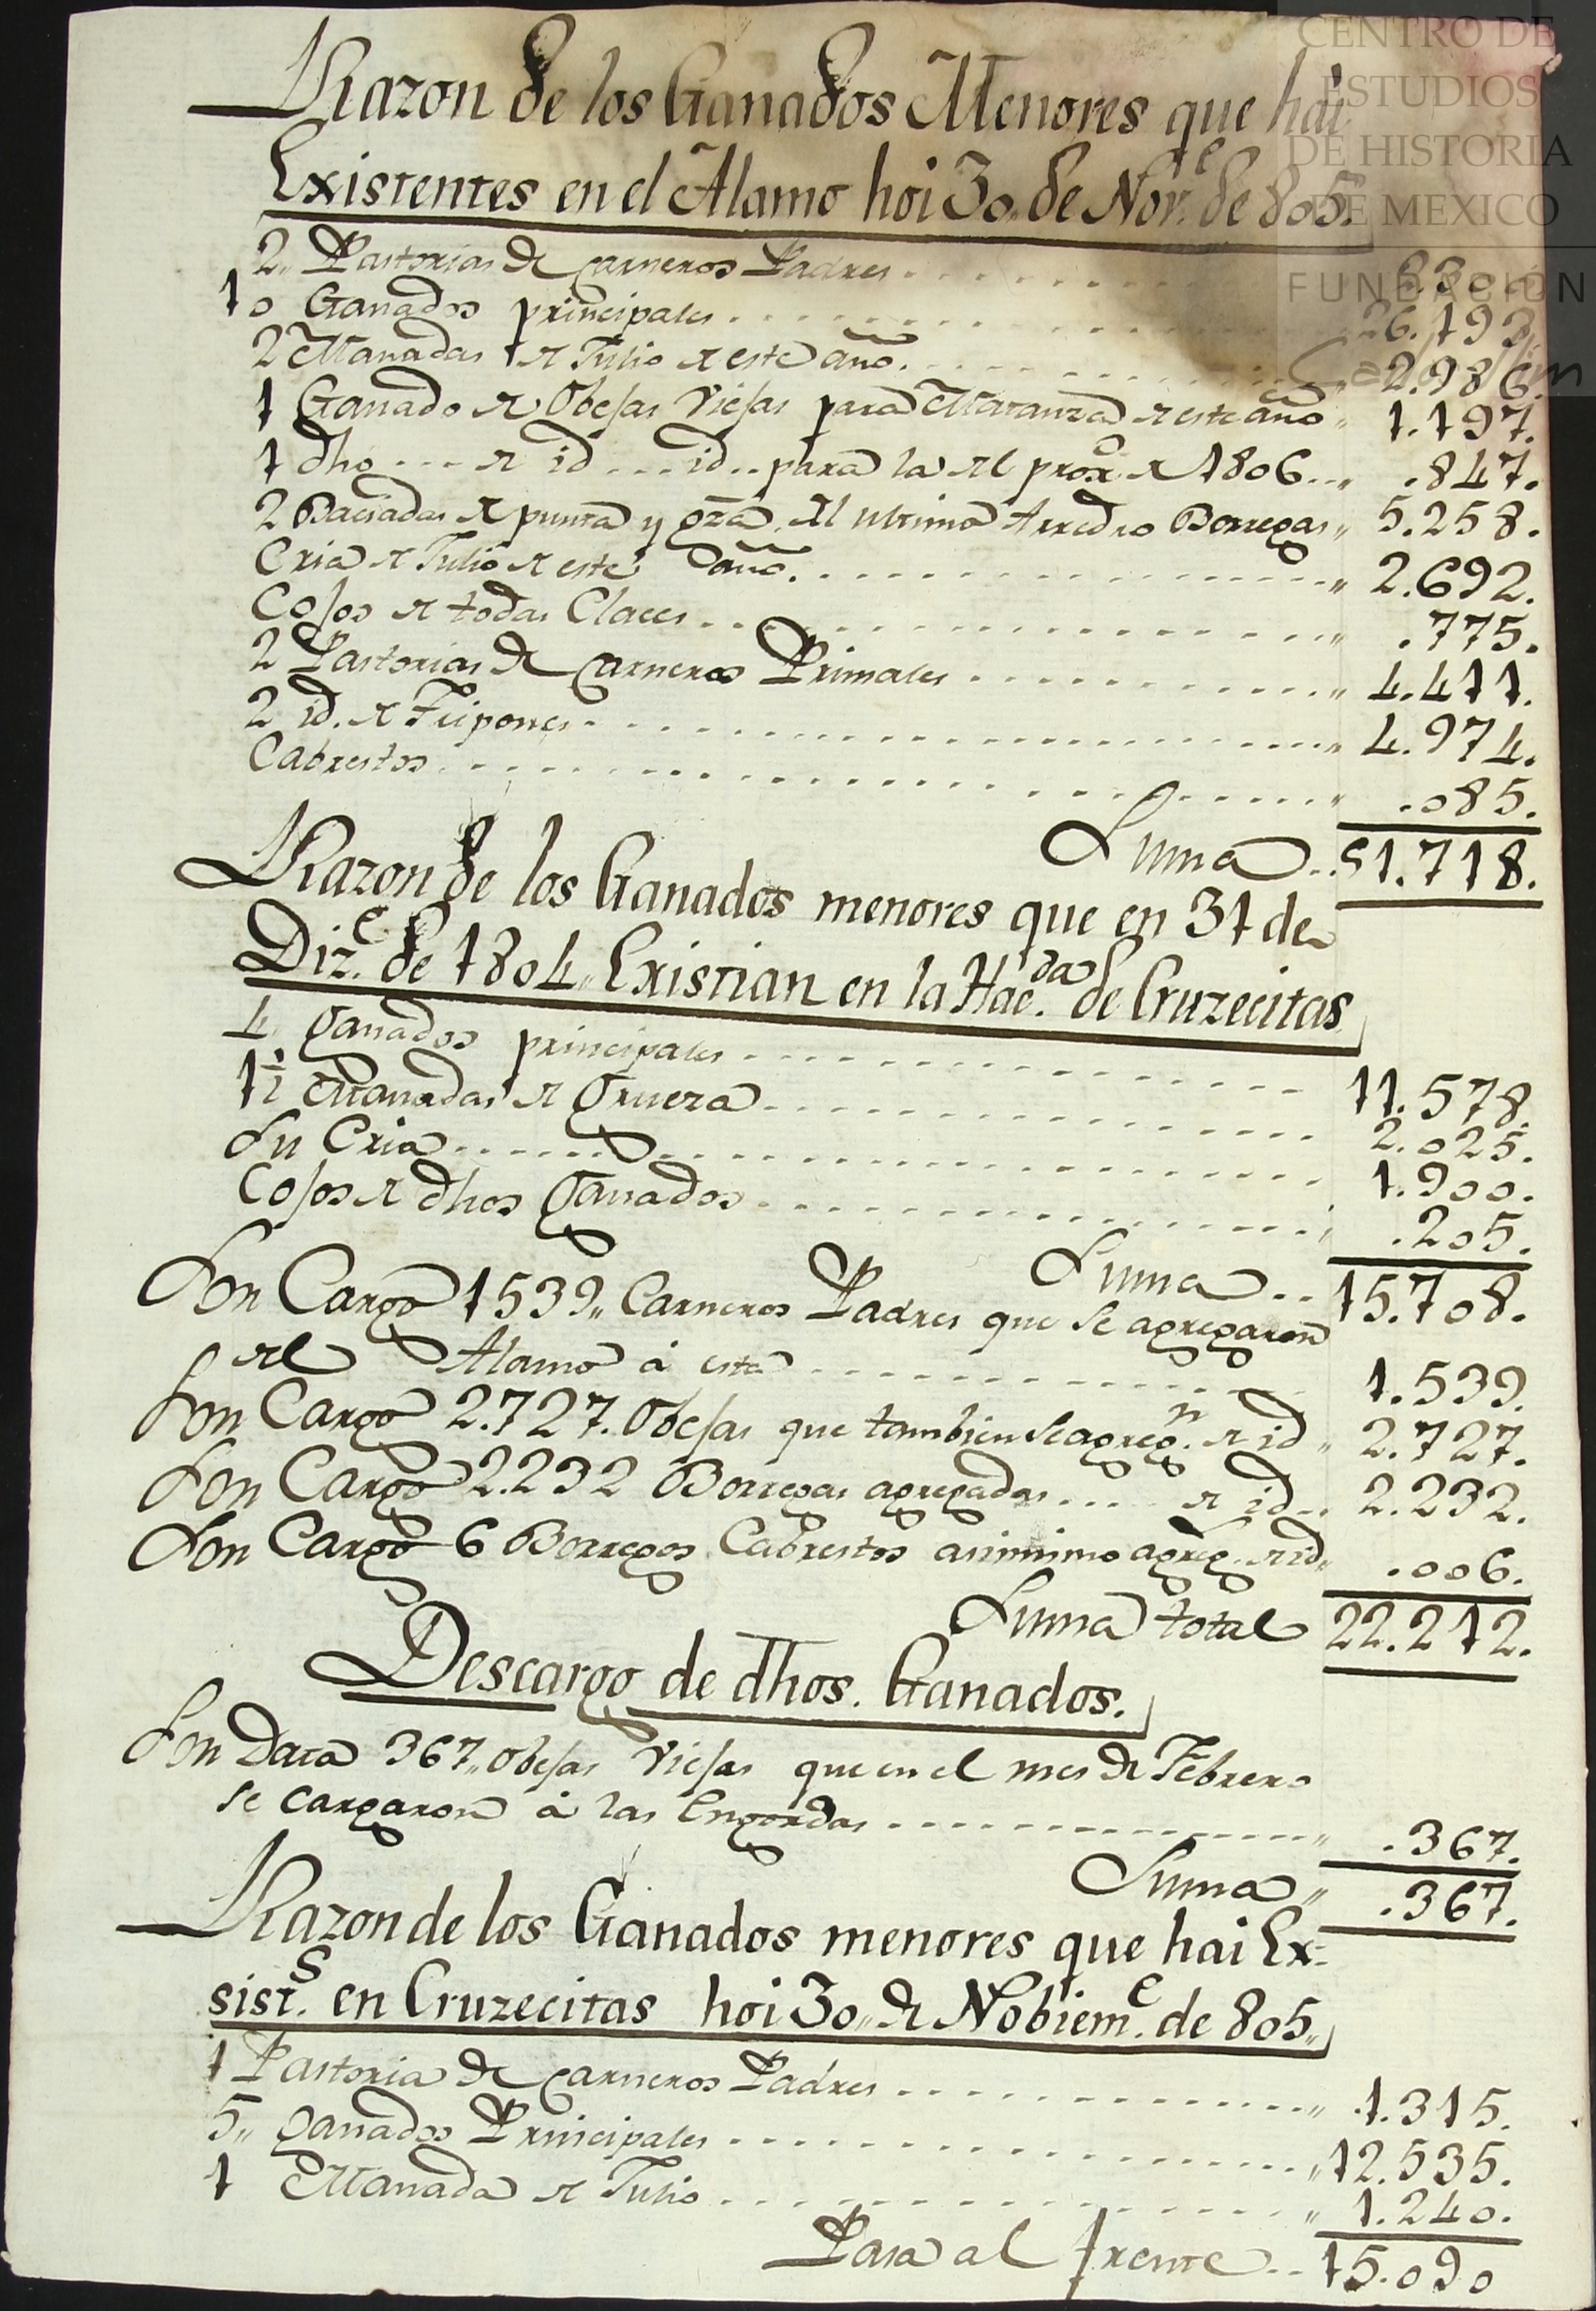 Razon de los Ganados Menores que hai
Existentes en el Alamo hoi 30, de Nov.e de 805.
2,, Pastorias de Carneros Padres
10 Ganados principales 26.193
2 Manadas de Julio de este año. 2.986.
1 Ganado de Obejas Viejas para Matanza de este año 1.197.
1 dho de id id para la del prox.o de 1806 .847.
2 Baciadas de punta y del ultimo Arredro Borregas 5.258.
Cria de Julio de este año. 2.692.
Cojos de todas Claces .775.
2 Pastorias de Carneros Primales 4.411.
2 id. de Tripones 4.974.
Cabrestos .085.
Suma 51.718.
Razon de los Ganados menores que en 31 de
Diz.e de 1804,, Existian en la Hac.da de Cruzecitas
4 ganados principales 11.578.
Manadas de grueza 2.025.
Su Cria 1.900.
Cojos de dhos ganados .205.
Suma 15.708.
Son Cargo 1539,, Carneros Padres que se agregaron
del Alamo á esta 1.539.
Son Cargo 2.727. Obejas que tambien se agreg.n de id 2.727.
Son Cargo 2.232 Borregas agregadas de id 2.232.
Son Cargo 6 Borregos Cabrestos asimismo agreg. de id .006.
Suma total 22.212.
Descargo de dhos. Ganados.
Son Data 367,, obejas Viejas que en el mes de Febrero
se cargaron á las Engordas .367.
Suma .367.
Razon de los Ganados menores que hai Ex-
sist.s en Cruzecitas hoi 30,, de Nobiem.e de 805,,
1 Pastoria de Carneros Padres 1.315.
5,, ganados Principales 12.535.
1 Manada de Julio 1.240.
Pasa al frente 15.090
CENTRO DE
ESTUDIOS
DE HISTORIA
DE MEXICO
FUNDACIÓN